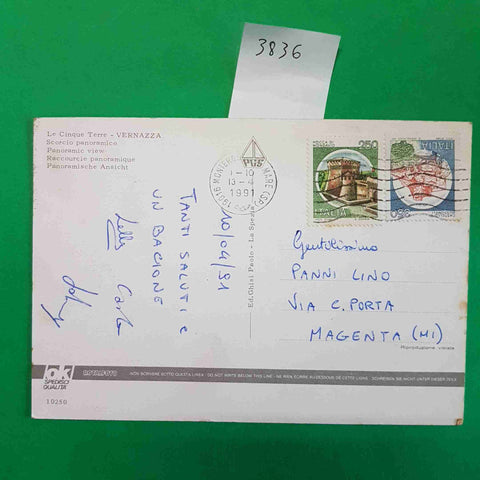 3836
Le Cinque Terre - VERNAZZA
Scorcio panoramico
Panoramic view
Raccourcie panoramique
Panoramische Ansicht
19016 MONTEROSSO MARE (SP)
13-4
1991
250
ITALIA
ITALIA
10/04/91
TANTI SALUTI E
UN BACIONE
Carlo
Ed. Ghigi Paolo - La Spezia
Gentilissimo
PANNI LINO
VIA C. PORTA
MAGENTA (MI)
Riproduzione vietata
ok
SPEDISCI
QUALITÀ
ROTALFOTO
NON SCRIVERE SOTTO QUESTA LINEA - DO NOT WRITE BELOW THIS LINE - NE RIEN ECRIRE AU-DESSOUS DE CETTE LIGNE - SCHREIBEN SIE NICHT UNTER DIESER ZEILE
10250